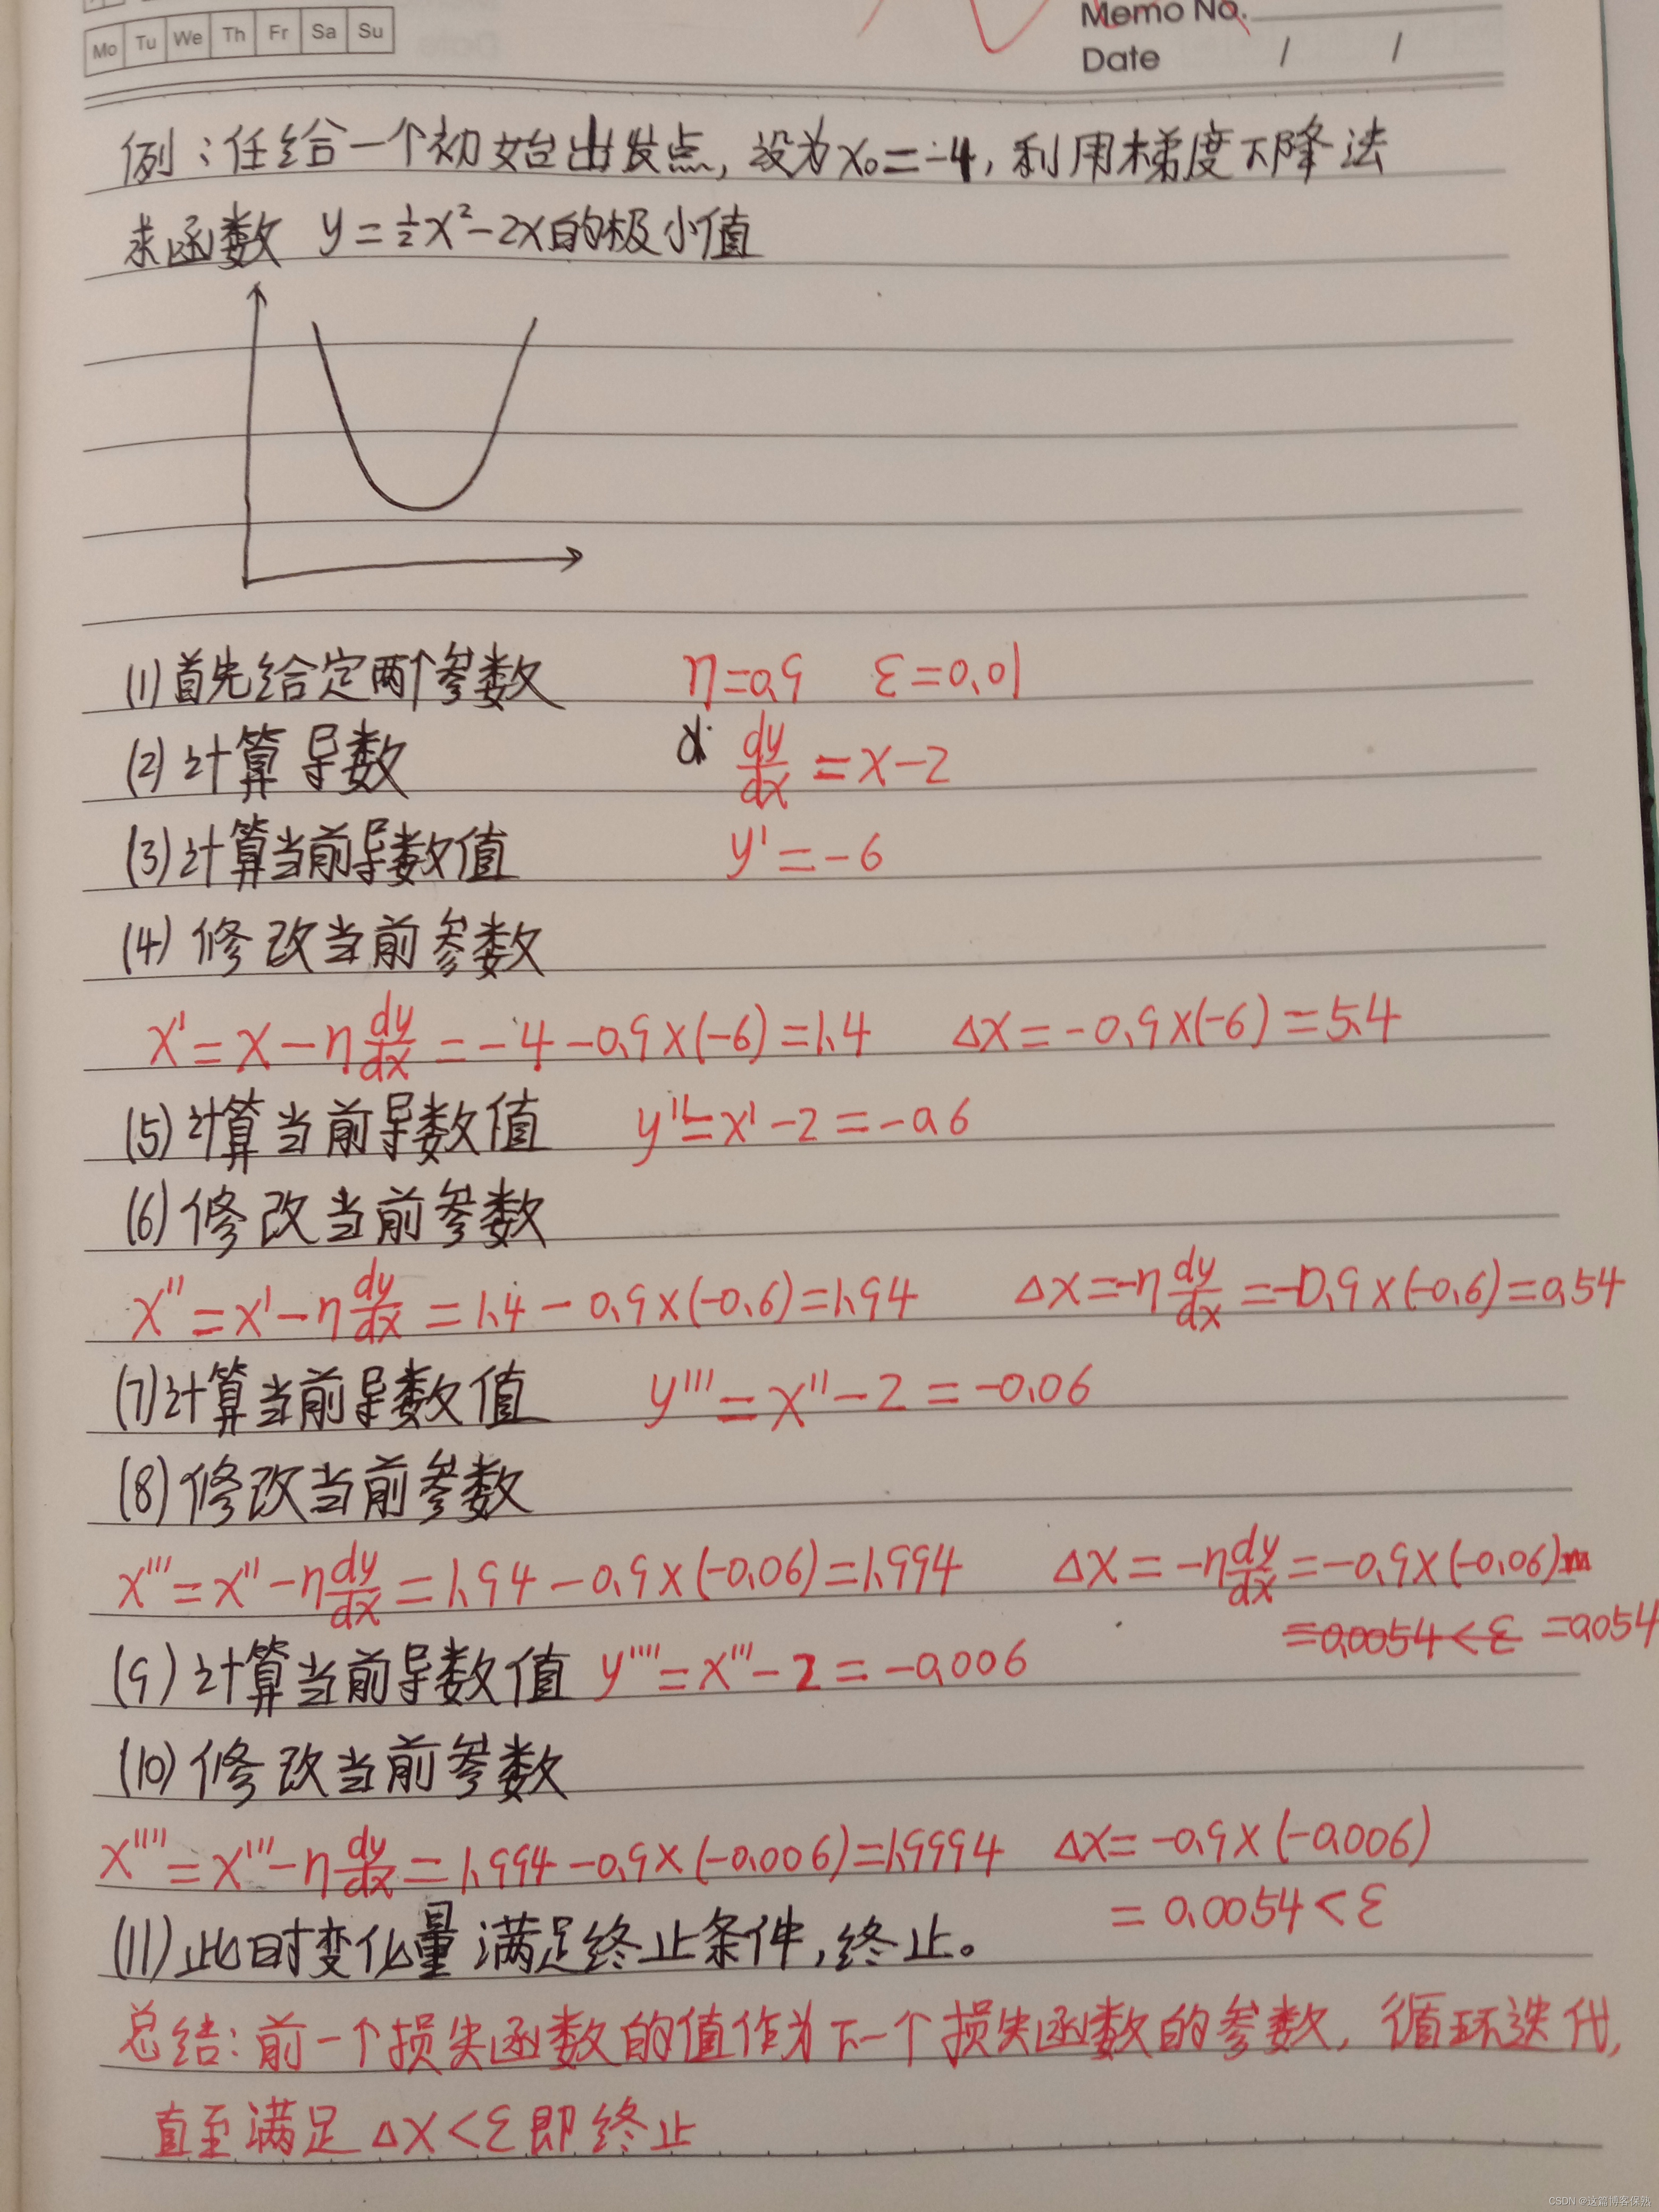 Mo Tu We Th Fr Sa Su
Memo No.
Date / /
例:任给一个初始出发点,设为x₀=-4,利用梯度下降法
求函数 y=½x²-2x的极小值
(1)首先给定两个参数 η=0.9 ε=0.01
(2)计算导数 dy/dx=x-2
(3)计算当前导数值 y'=-6
(4)修改当前参数
x'=x-ηdy/dx=-4-0.9×(-6)=1.4 Δx=-0.9×(-6)=5.4
(5)计算当前导数值 y''=x'-2=-0.6
(6)修改当前参数
x''=x'-ηdy/dx=1.4-0.9×(-0.6)=1.94 Δx=-ηdy/dx=-0.9×(-0.6)=0.54
(7)计算当前导数值 y'''=x''-2=-0.06
(8)修改当前参数
x'''=x''-ηdy/dx=1.94-0.9×(-0.06)=1.994 Δx=-ηdy/dx=-0.9×(-0.06)
=0.0054<ε =0.054
(9)计算当前导数值 y''''=x'''-2=-0.006
(10)修改当前参数
x''''=x'''-ηdy/dx=1.994-0.9×(-0.006)=1.9994 Δx=-0.9×(-0.006)
=0.0054<ε
(11)此时变化量满足终止条件,终止。
总结:前一个损失函数的值作为下一个损失函数的参数,循环迭代,
直至满足Δx<ε即终止
CSDN @这篇博客保熟